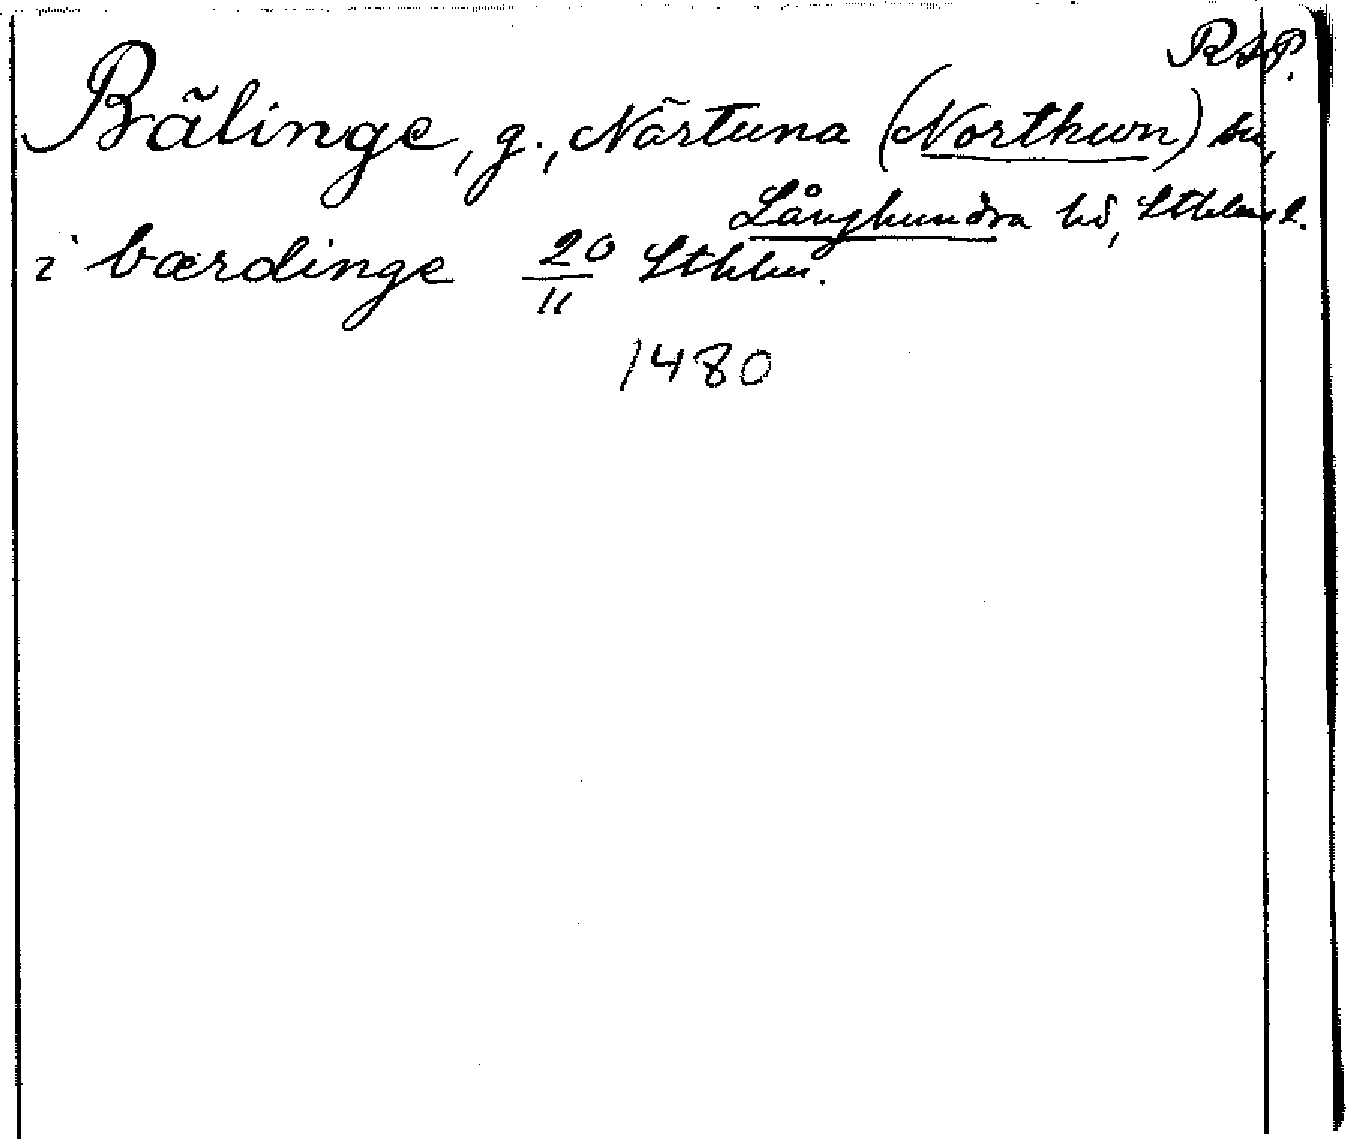 RAP.
Bälinge, g., Närtuna (Northwn) sn,
Långhundra hd, Sthlms l.
i bærdinge 20/11 Sthlm.
1480